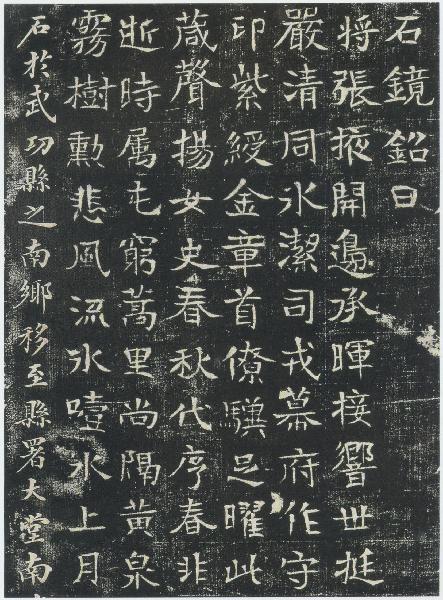 石鏡銘曰
將張掖開邊承暉接響世挺
嚴清同氷潔司戎幕府作守
印紫綬金章首僚驥足曜此
葴聲揚女史春秋代序春非
逝時属屯窮蒿里尚隔黃泉
霧樹勲悲風流氷噎水上月
石於武功縣之南鄉移至縣署大堂南